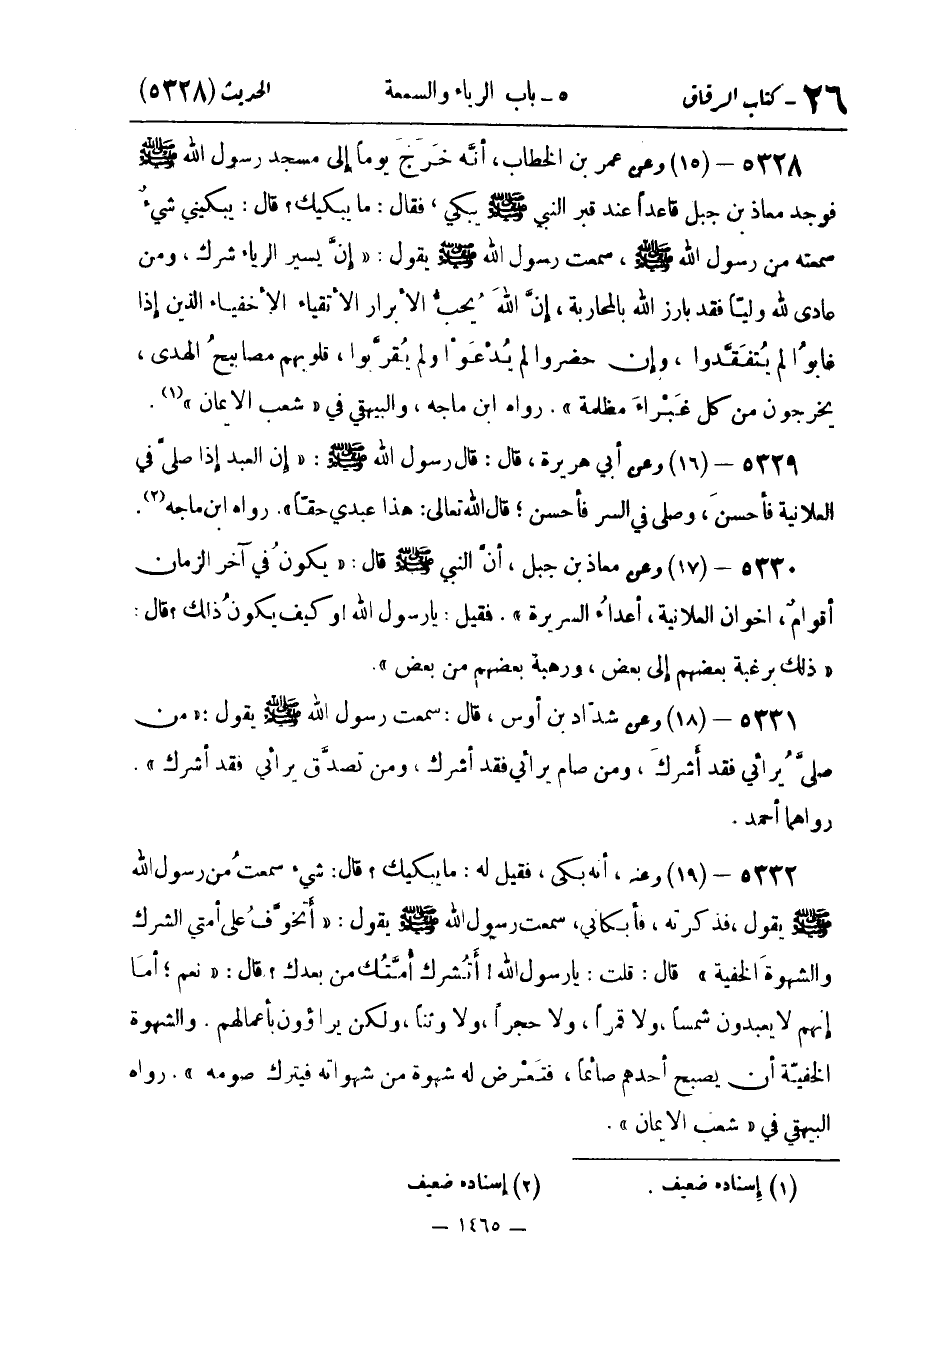 ٢٦ - كتاب الرقاق ٥ - باب الرياء والسمعة الحديث (٥٣٢٨)
٥٣٢٨ - (١٥) وعن عمر بن الخطاب، أنَّه خَرَجَ يوماً إلى مسجد رسول الله ﷺ
فوجد معاذ بن جبل قاعداً عند قبر النبي ﷺ يبكي، فقال: ما يبكيك؟ قال: يبكيني شيءٌ
سمعته من رسول الله ﷺ، سمعت رسول الله ﷺ يقول: « إنَّ يسير الرياء شرك، ومن
عادى لله وليّاً فقد بارز الله بالمحاربة، إنَّ اللهَ يُحبُّ الأبرار الأتقياء الأخفياء الذين إذا
غابوُا لم يُتفَقَّدوا، وإن حضروا لم يُدْعَوْا ولم يُقرَّبوا، قلوبهم مصابيحُ الهدى،
يخرجون من كل غَبْراءَ مظلمة ». رواه ابن ماجه، والبيهقي في « شعب الايمان »(١).
٥٣٢٩ - (١٦) وعن أبي هريرة، قال: قال رسول الله ﷺ: « إن العبد إذا صلىَّ في
العلانية فأحسنَ، وصلى في السر فأحسن؛ قال الله تعالى: هذا عبدي حقّاً». رواه ابن ماجه(٢).
٥٣٣٠ - (١٧) وعن معاذ بن جبل، أنَّ النبي ﷺ قال: « يكونُ في آخر الزمان
أقوامٌ، اخوان العلانية، أعداءُ السريرة ». فقيل: يا رسول الله! وكيف يكونُ ذالك؟ قال:
« ذلك برغبة بعضهم إلى بعض، ورهبة بعضهم من بعض ».
٥٣٣١ - (١٨) وعن شدّاد بن أوس، قال: سمعت رسول الله ﷺ يقول: « من
صلىَّ يُرائي فقد أَشركَ، ومن صام يرائي فقد أشرك، ومن تصدَّق يرائي فقد أشرك ».
رواهما أحمد.
٥٣٣٢ - (١٩) وعنه، أنه بكى، فقيل له: ما يبكيك؟ قال: شيء سمعتُ من رسول الله
ﷺ يقول، فذكرته، فأبكاني، سمعت رسول الله ﷺ يقول: « أَتخوَّفُ على أمتي الشرك
والشهوةَ الخفية » قال: قلت: يا رسول الله! أَتُشرك أُمَّتُك من بعدك؟ قال: « نعم؛ أما
إنهم لا يعبدون شمساً، ولا قمراً، ولا حجراً، ولا وثناً، ولكن يراؤون بأعمالهم. والشهوة
الخفيّة أن يصبح أحدهم صائماً، فتَعْرض له شهوة من شهواته فيترك صومه ». رواه
البيهقي في « شعب الايمان ».
(١) إسناده ضعيف. (٢) إسناده ضعيف
- ١٤٦٥ -